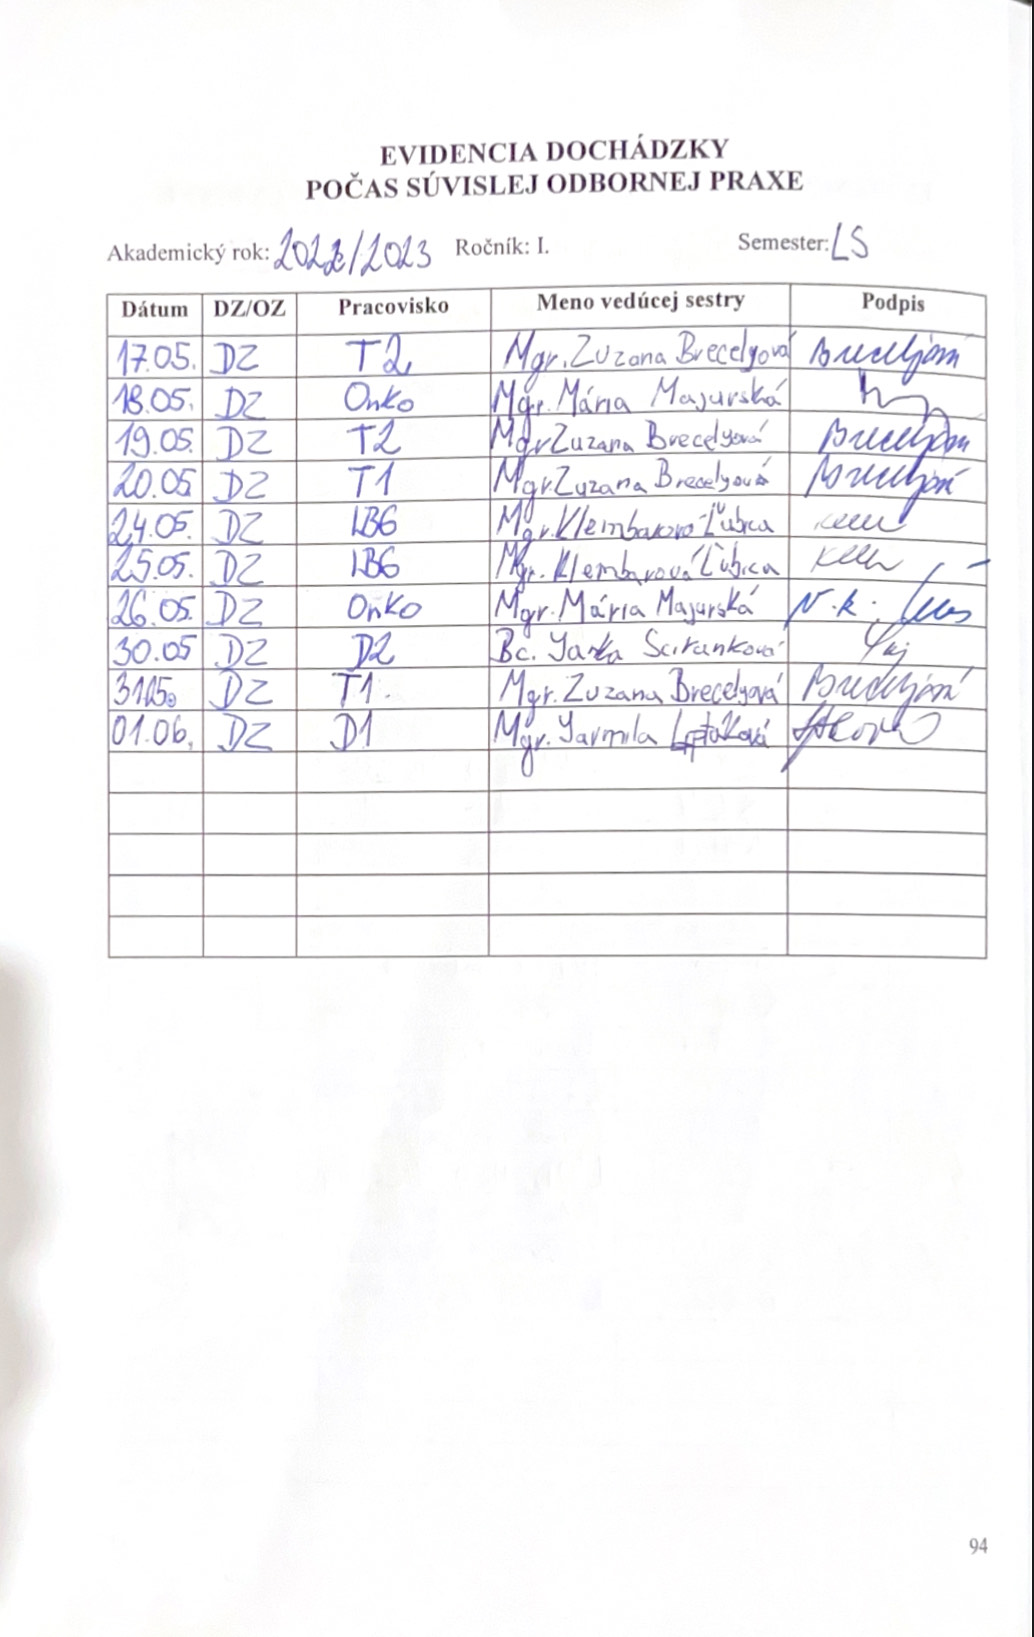 EVIDENCIA DOCHÁDZKY
POČAS SÚVISLEJ ODBORNEJ PRAXE
Akademický rok: 2022/2023 Ročník: I. Semester: LS
Dátum DZ/OZ Pracovisko Meno vedúcej sestry Podpis
17.05. DZ T2 Mgr. Zuzana Brecelyová Brecelyová
18.05. DZ Onko Mgr. Mária Majurská
19.05. DZ T2 Mgr Zuzana Brecelyová Brecelyová
20.05 DZ T1 Mgr. Zuzana Brecelyová Brecelyová
24.05. DZ LB6 Mgr. Klembarová Ľubica
25.05. DZ LB6 Mgr. Klembarová Ľubica
26.05. DZ Onko Mgr. Mária Majurská
30.05 DZ D2 Bc. Janka Sciranková
31.05. DZ T1. Mgr. Zuzana Brecelyová Brecelyová
01.06. DZ D1 Mgr. Jarmila
94